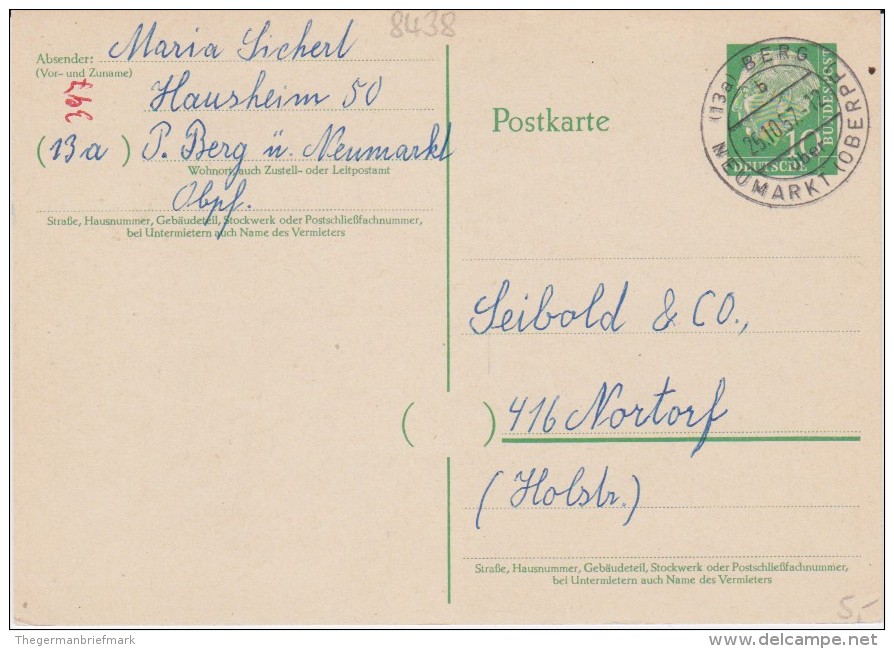 8438
Absender: Maria Sichert
(Vor- und Zuname)
347
Hausheim 50
(13a) P. Berg ü. Neumarkt
Wohnort, auch Zustell- oder Leitpostamt
Obpf.
Straße, Hausnummer, Gebäudeteil, Stockwerk oder Postschließfachnummer,
bei Untermietern auch Name des Vermieters
Postkarte
(13a) BERG
b
25.10.57.-12
über
NEUMARKT (OBERPF)
10
DEUTSCHE
BUNDESPOST
Seibold & Co.,
( ) 416 Nortorf
(Holstr.)
Straße, Hausnummer, Gebäudeteil, Stockwerk oder Postschließfachnummer,
bei Untermietern auch Name des Vermieters
5,-
Thegermanbriefmark
delcampe.net